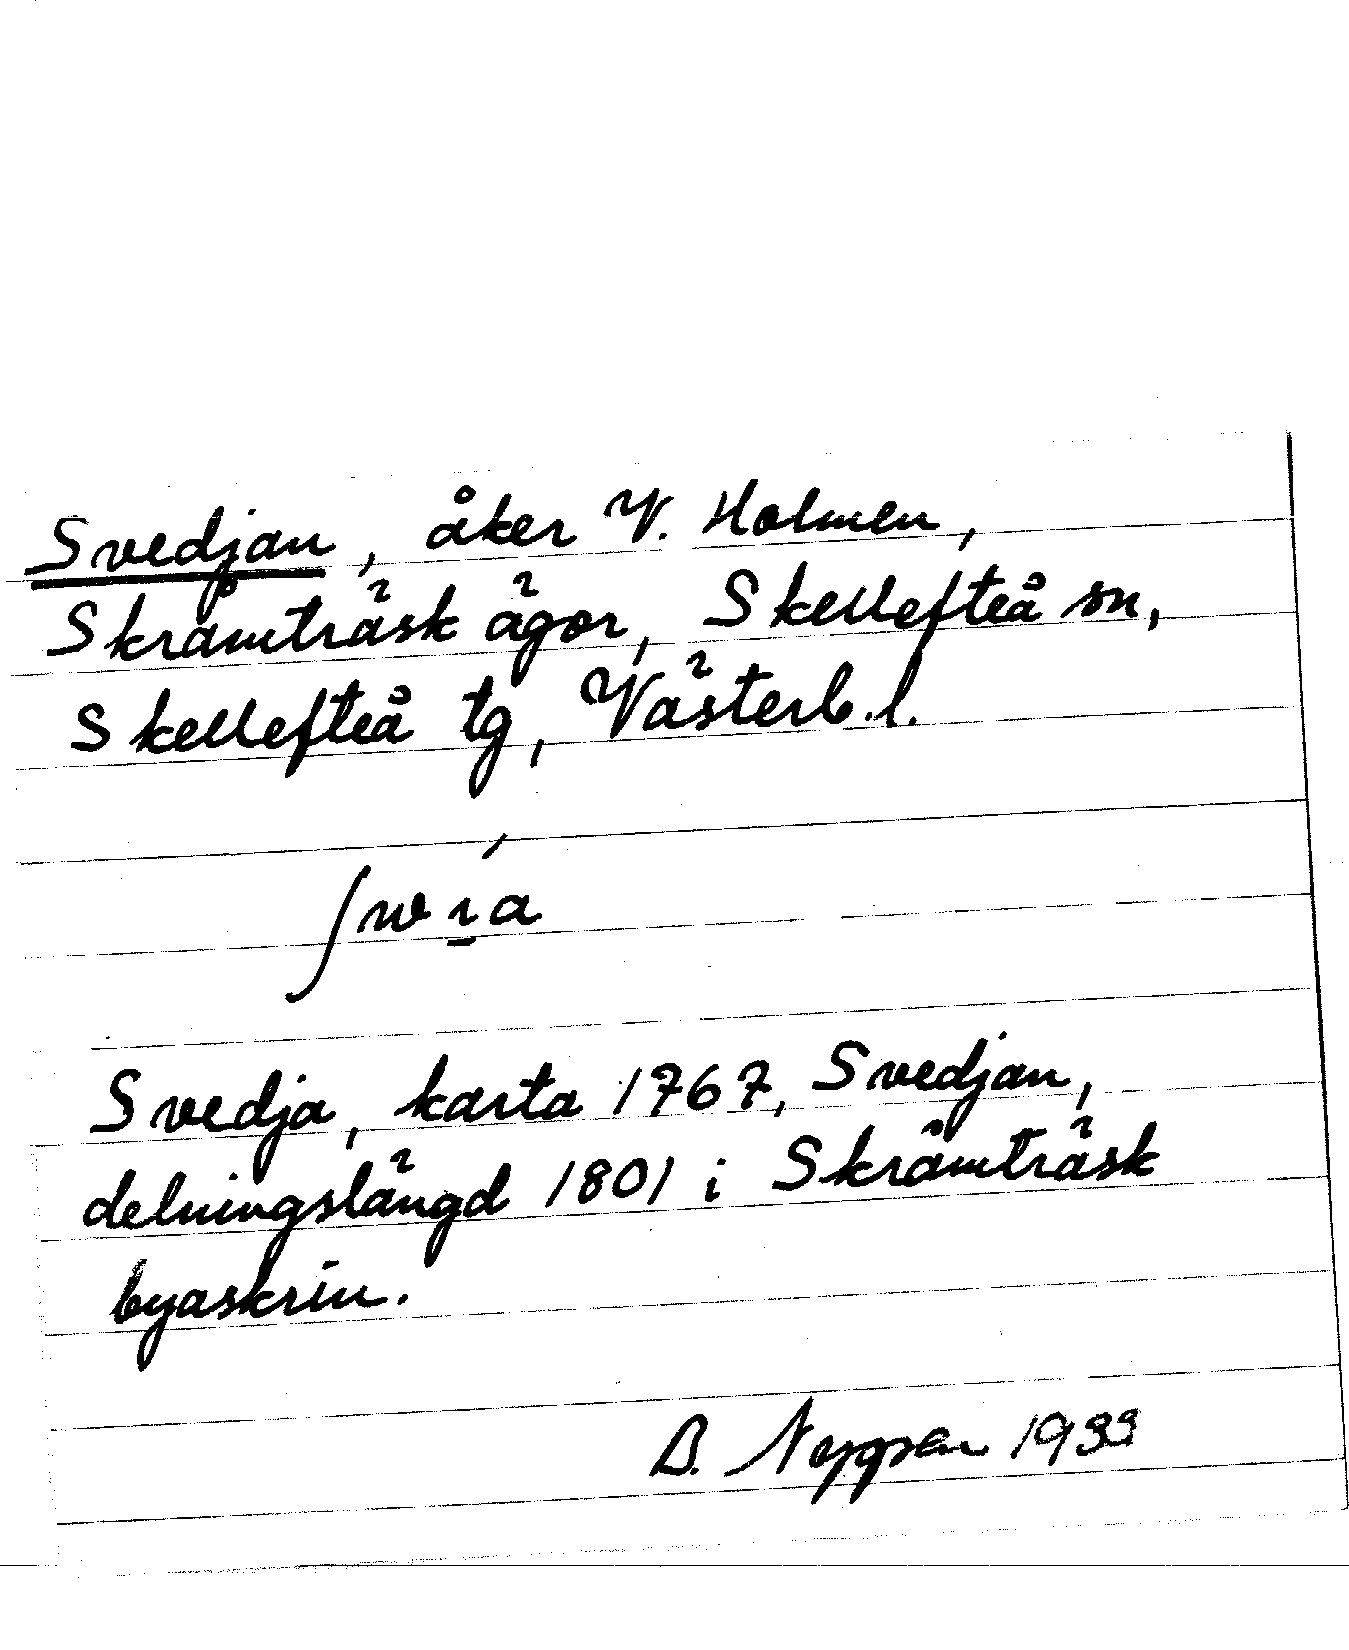 Svedjan, åker V. Holmen,
Skråmträsk ägor, Skellefteå sn,
Skellefteå tg, Västerb. l.
Svedja, karta 1767, Svedjan,
delningslängd 1801 i Skråmträsk
byaskrin.
B. 1933